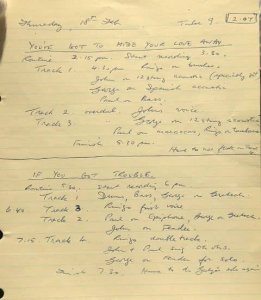 Thursday 18th Feb. Titles 9. 2.47
YOU'VE GOT TO HIDE YOUR LOVE AWAY
Routine 2.15 pm Start recording 3.30
Track 1 4.30 pm Ringo on brushes
John on 12 string acoustic
George on Spanish acoustic
Paul on Bass.
Track 2 overdub John's voice
Track 3. George on 12 string acoustic
Paul on maraccas, Ringo on tambourine
Finish 5.00 pm.
IF YOU GOT TROUBLE
Routine 5.30. Start recording 6 pm
Track 1 Drums, Bass, George on Gretsch.
6.40 Track 3 Ringo first voice
Track 2 Paul on Epiphone, George on Gretsch.
John on Fender.
7.15 Track 4. Ringo double track.
John & Paul sing
George on Fender for solo.
Finish 7.30.